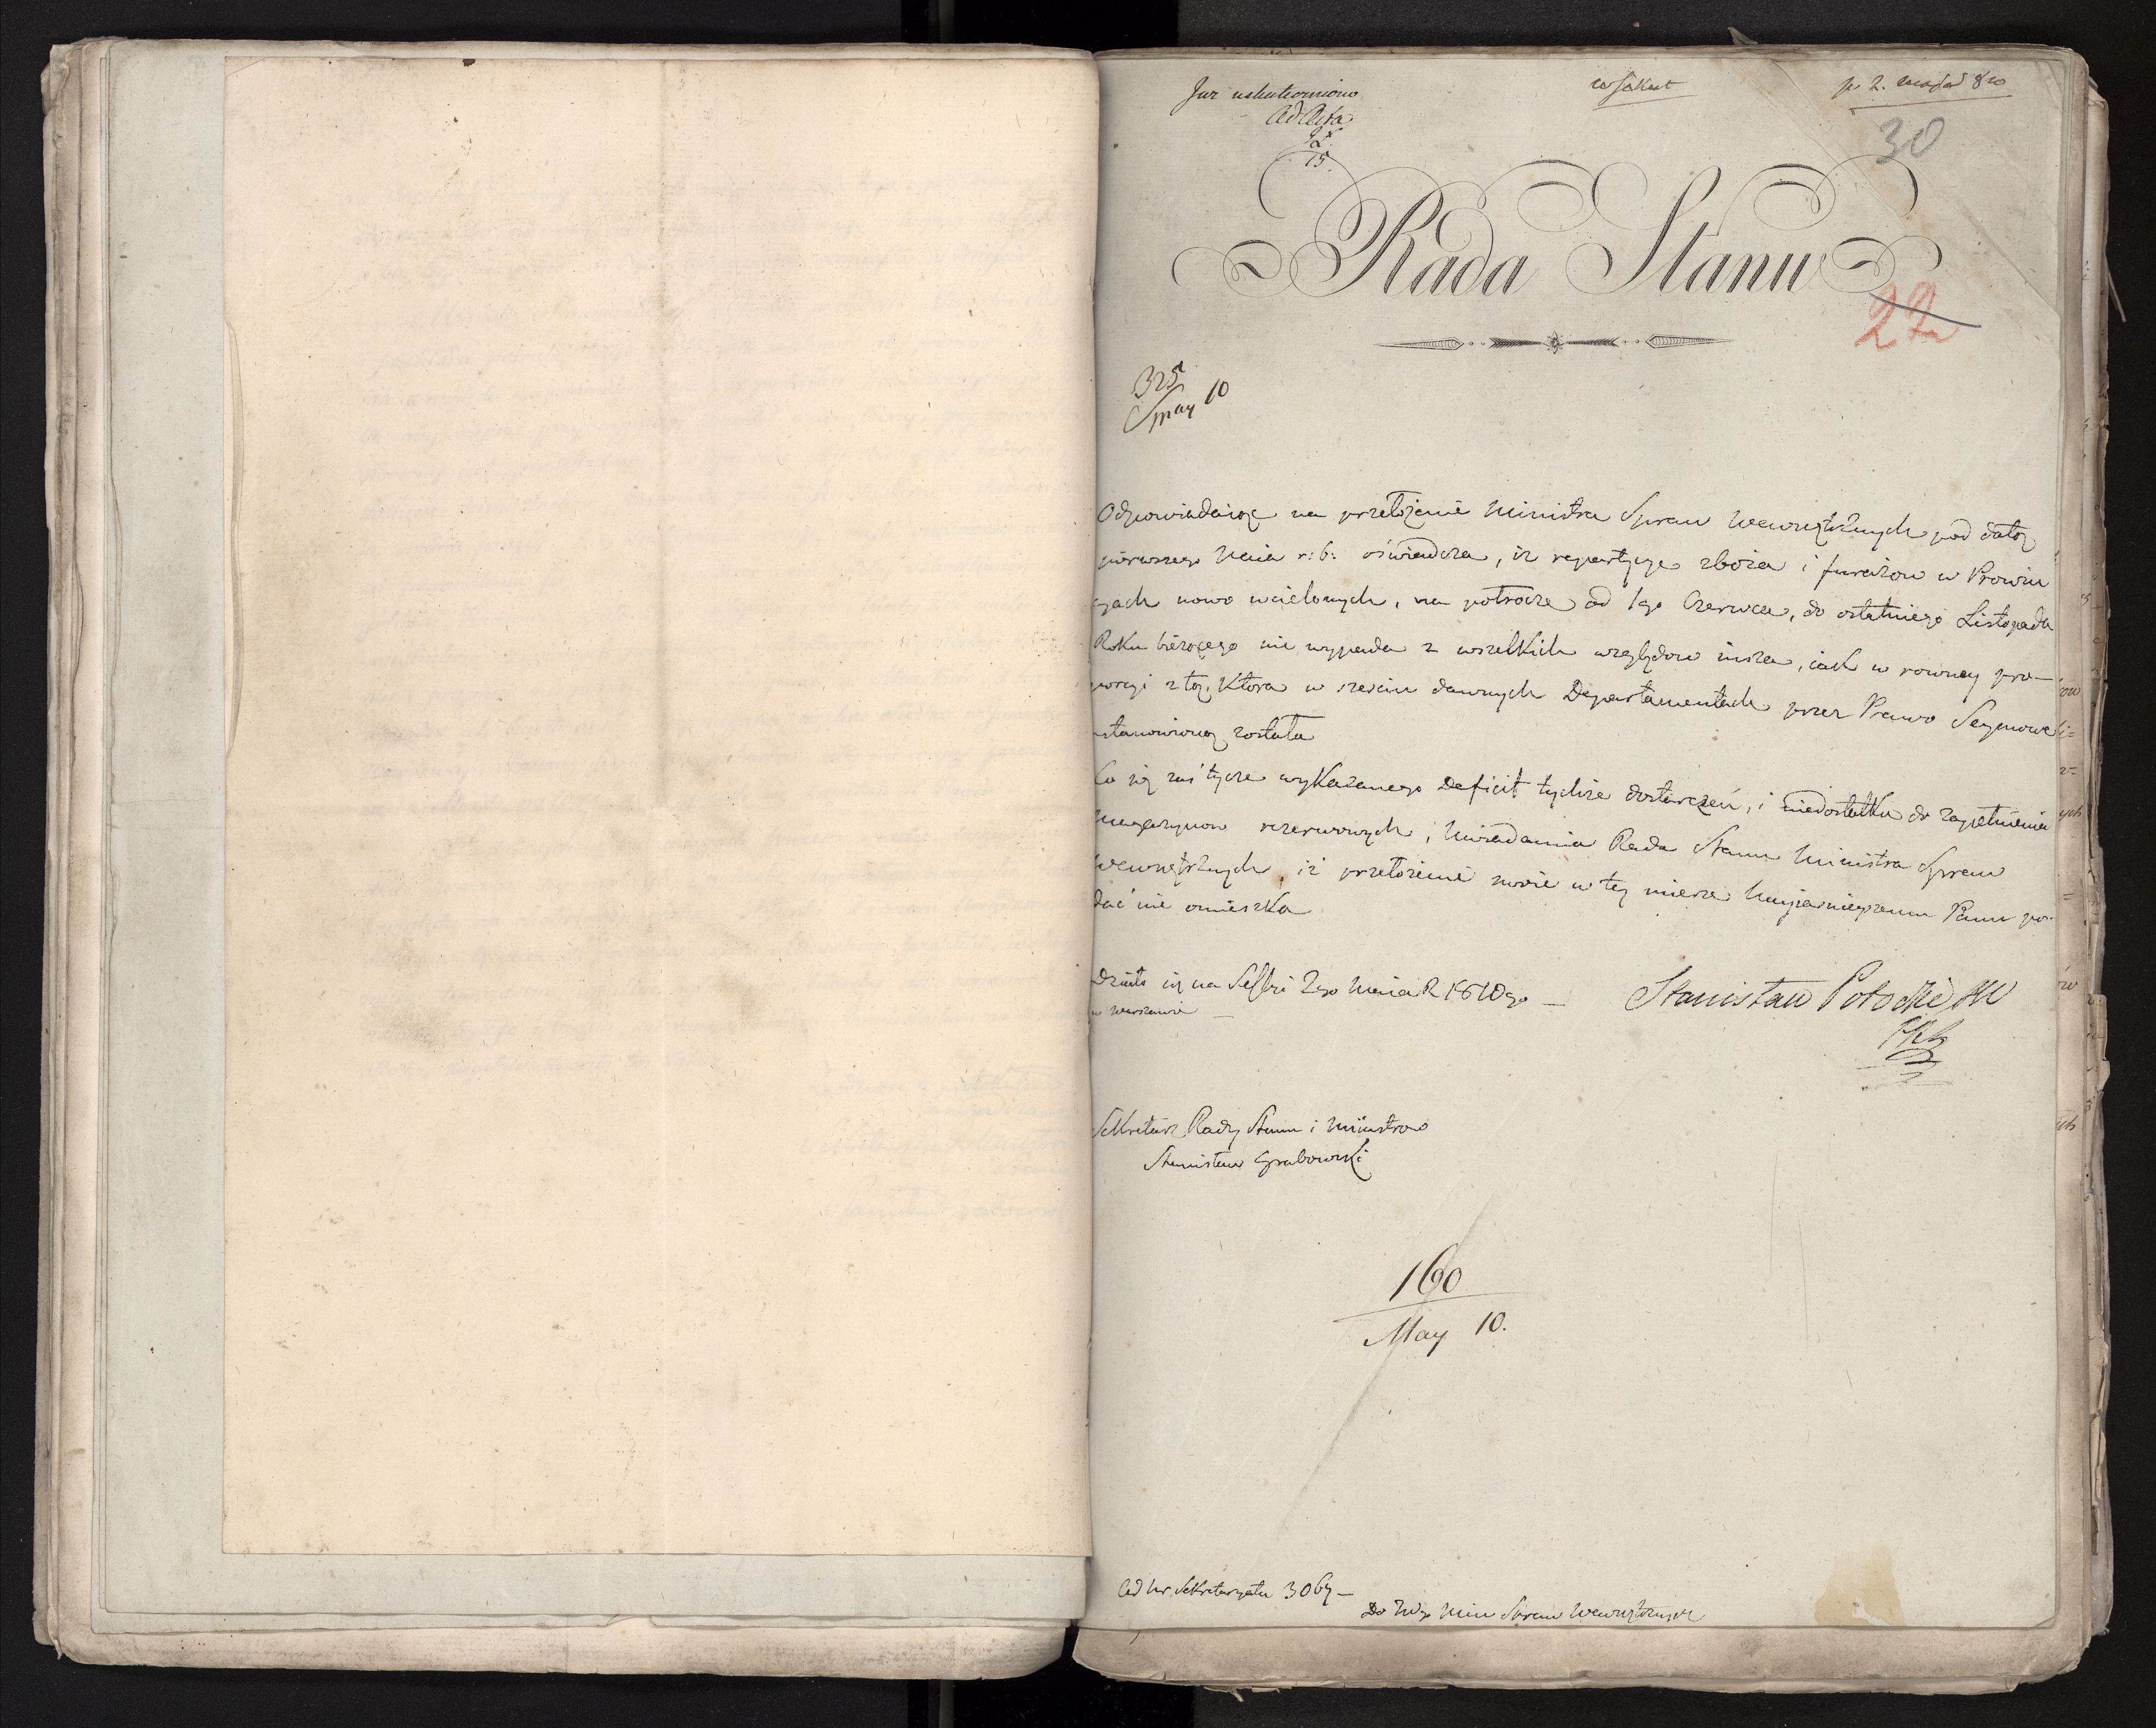 Już uskuteczniono
Ad Acta
15
p 2. maja 810
30
Rada Stanu
22
325
May 10
Odpowiadaiąc na przełożenie Ministra Spraw Wewnętrznych pod datą
pierwszego Maia r: b: oświadcza, iż repartycye zboża i furażow w Prowin
cyach nowo wcielonych, na połrocze od 1go Czerwca, do ostatniego Listopada
Roku bieżącego nie wypada z wszelkich względow insza, iak w rowney pro-
porcyi z tą, ktora w sześciu dawnych Departamentach przez Prawo Seymowe
ustanowioną została
Co się zaś tycze wykazanego Deficit tychże dostarczeń, i niedostatku do zapełnienia
magazynow rezerwowych, Uwiadamia Rada Stanu Ministra Spraw
Wewnętrznych, iż przełożenie swoie w tey mierze Nayiaśnieyszemu Panu po-
dać nie omieszka
Działo się na Sessyi 2go Maia R 1810go
w Warszawie
Stanisław Potocki
Sekretarz Rady Stanu i Ministrow
Stanisław Grabowski
160
May 10.
Ad Nr Sekretaryatu 3067
Do JWgo Min Spraw Wewnętrznych